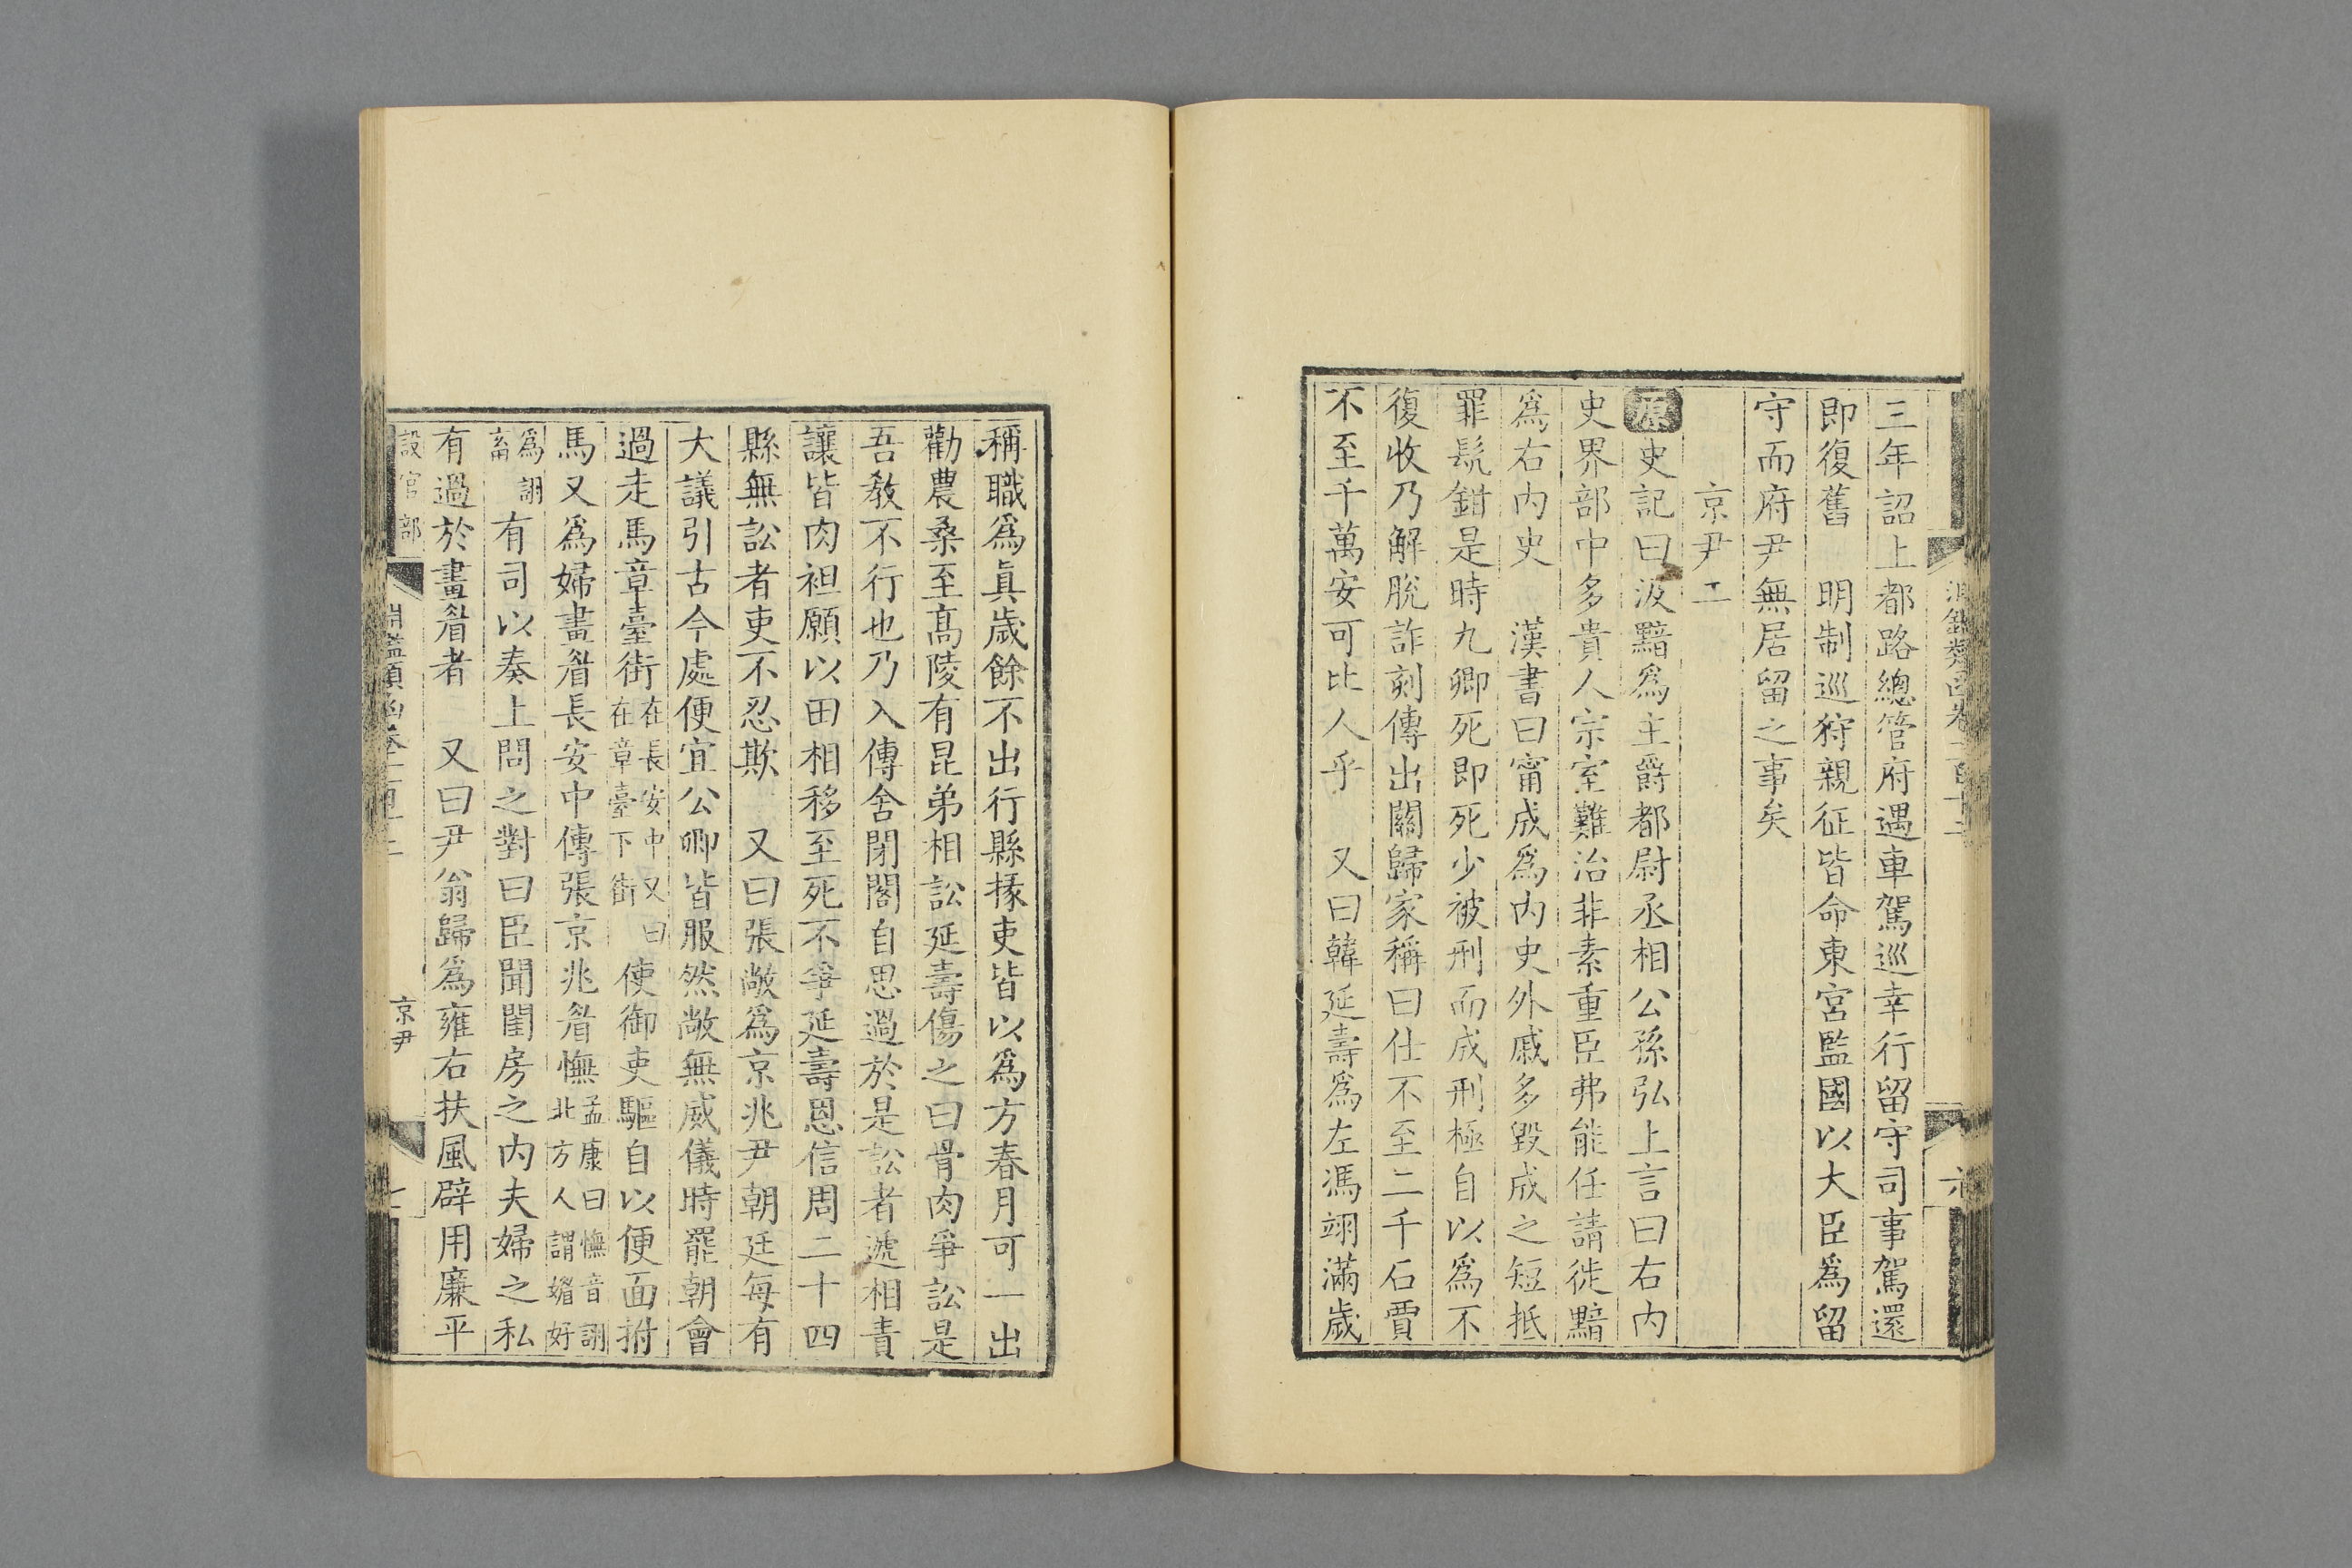 三年詔上都路總管府遇車駕巡幸行留守司事駕還
即復舊　明制巡狩親征皆命東宮監國以大臣爲留
守而府尹無居留之事矣
京尹二
原史記曰汲黯爲主爵都尉丞相公孫弘上言曰右內
史界部中多貴人宗室難治非素重臣弗能任請徙黯
爲右內史　漢書曰甯成爲內史外戚多毀成之短抵
罪髡鉗是時九卿死即死少被刑而成刑極自以爲不
復收乃解脫詐刻傳出關歸家稱曰仕不至二千石賈
不至千萬安可比人乎　又曰韓延壽爲左馮翊滿歲
稱職爲眞歲餘不出行縣掾吏皆以爲方春月可一出
勸農桑至高陵有昆弟相訟延壽傷之曰骨肉爭訟是
吾教不行也乃入傳舍閉閣自思過於是訟者遞相責
讓皆肉袒願以田相移至死不爭延壽恩信周二十四
縣無訟者吏不忍欺　又曰張敞爲京兆尹朝廷每有
大議引古今處便宜公卿皆服然敞無威儀時罷朝會
過走馬章臺街在長安中又曰在章臺下街使御吏驅自以便面拊
馬又爲婦畫眉長安中傳張京兆眉憮孟康曰憮音詡北方人謂媚好
爲詡畜有司以奏上問之對曰臣聞閨房之內夫婦之私
有過於畫眉者　又曰尹翁歸爲雍右扶風辟用廉平
設官部　淵鑑類函卷一百十二　京尹　七